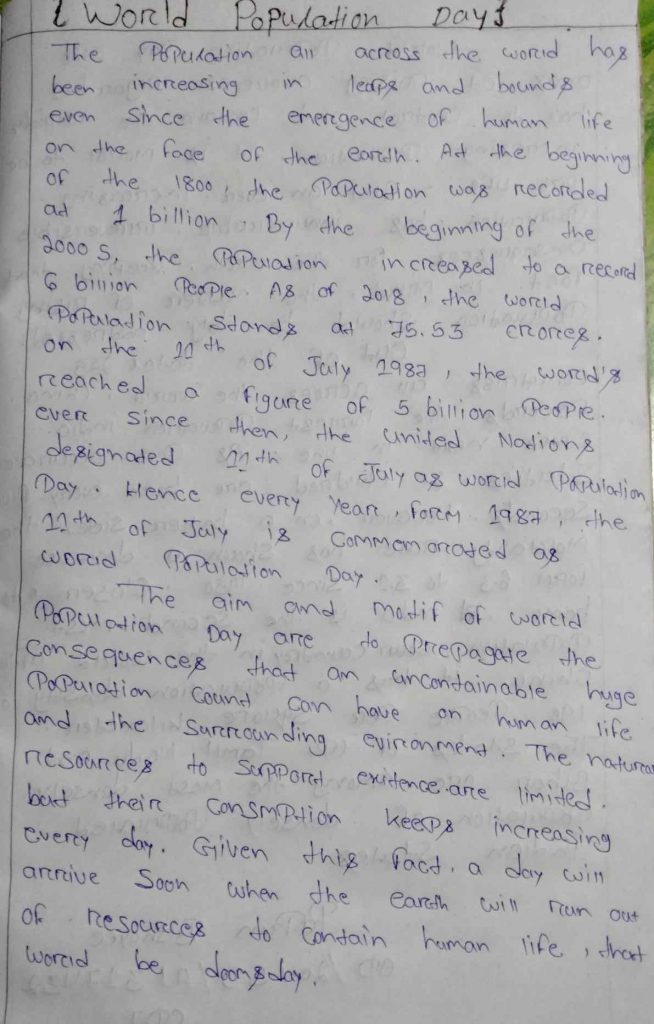 { World Population Day }
The Population all across the world has
been increasing in leaps and bounds
even since the emergence of human life
on the face of the earth. At the beginning
of the 1800, the Population was recorded
at 1 billion. By the beginning of the
2000 s, the Population increased to a record
6 billion People. As of 2018, the world
Population stands at 75.53 crores.
on the 11th of July 1987, the world's
reached a figure of 5 billion People.
ever since then, the united Nations
designated 11th of July as world Population
Day. Hence every year, form 1987, the
11th of July is commemorated as
world Population Day.
The aim and motif of world
Population Day are to Prepagate the
consequences that an uncontainable huge
Population count can have on human life
and the surrounding evironment. The natural
resources to support exitence are limited.
but their consmption keeps increasing
every day. Given this fact, a day will
arrive soon when the earth will run out
of resources to contain human life, that
world be doomsday.